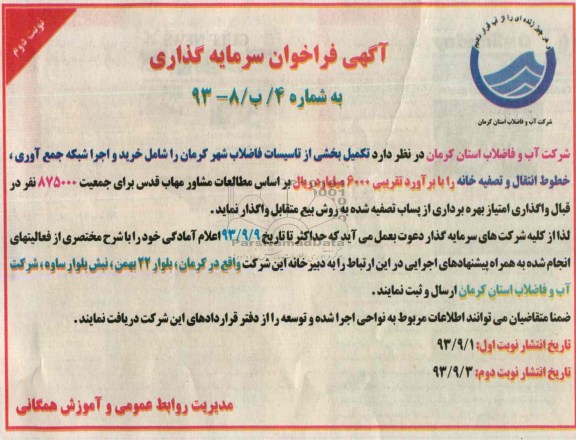 نوبت دوم
و هر چیز زنده ای را از آب قرار دادیم
شرکت آب و فاضلاب استان کرمان
آگهی فراخوان سرمایه گذاری
به شماره ۴/ ب/۸- ۹۳
شرکت آب و فاضلاب استان کرمان در نظر دارد تکمیل بخشی از تاسیسات فاضلاب شهر کرمان را شامل خرید و اجرا شبکه جمع آوری ،
خطوط انتقال و تصفیه خانه را با برآورد تقریبی ۶۰۰۰ میلیارد ریال بر اساس مطالعات مشاور مهاب قدس برای جمعیت ۸۷۵۰۰۰ نفر در
قبال واگذاری امتیاز بهره برداری از پساب تصفیه شده به روش بیع متقابل واگذار نماید .
لذا از کلیه شرکت های سرمایه گذار دعوت بعمل می آید که حداکثر تا تاریخ ۹۳/۹/۹ اعلام آمادگی خود را با شرح مختصری از فعالیتهای
انجام شده به همراه پیشنهادهای اجرایی در این ارتباط را به دبیر خانه این شرکت واقع در کرمان ، بلوار ۲۲ بهمن ، نبش بلوار ساوه ، شرکت
آب و فاضلاب استان کرمان ارسال و ثبت نمایند .
ضمنا متقاضیان می توانند اطلاعات مربوط به نواحی اجرا شده و توسعه را از دفتر قراردادهای این شرکت دریافت نمایند .
تاریخ انتشار نوبت اول: ۹۳/۹/۱
تاریخ انتشار نوبت دوم: ۹۳/۹/۳
مدیریت روابط عمومی و آموزش همگانی